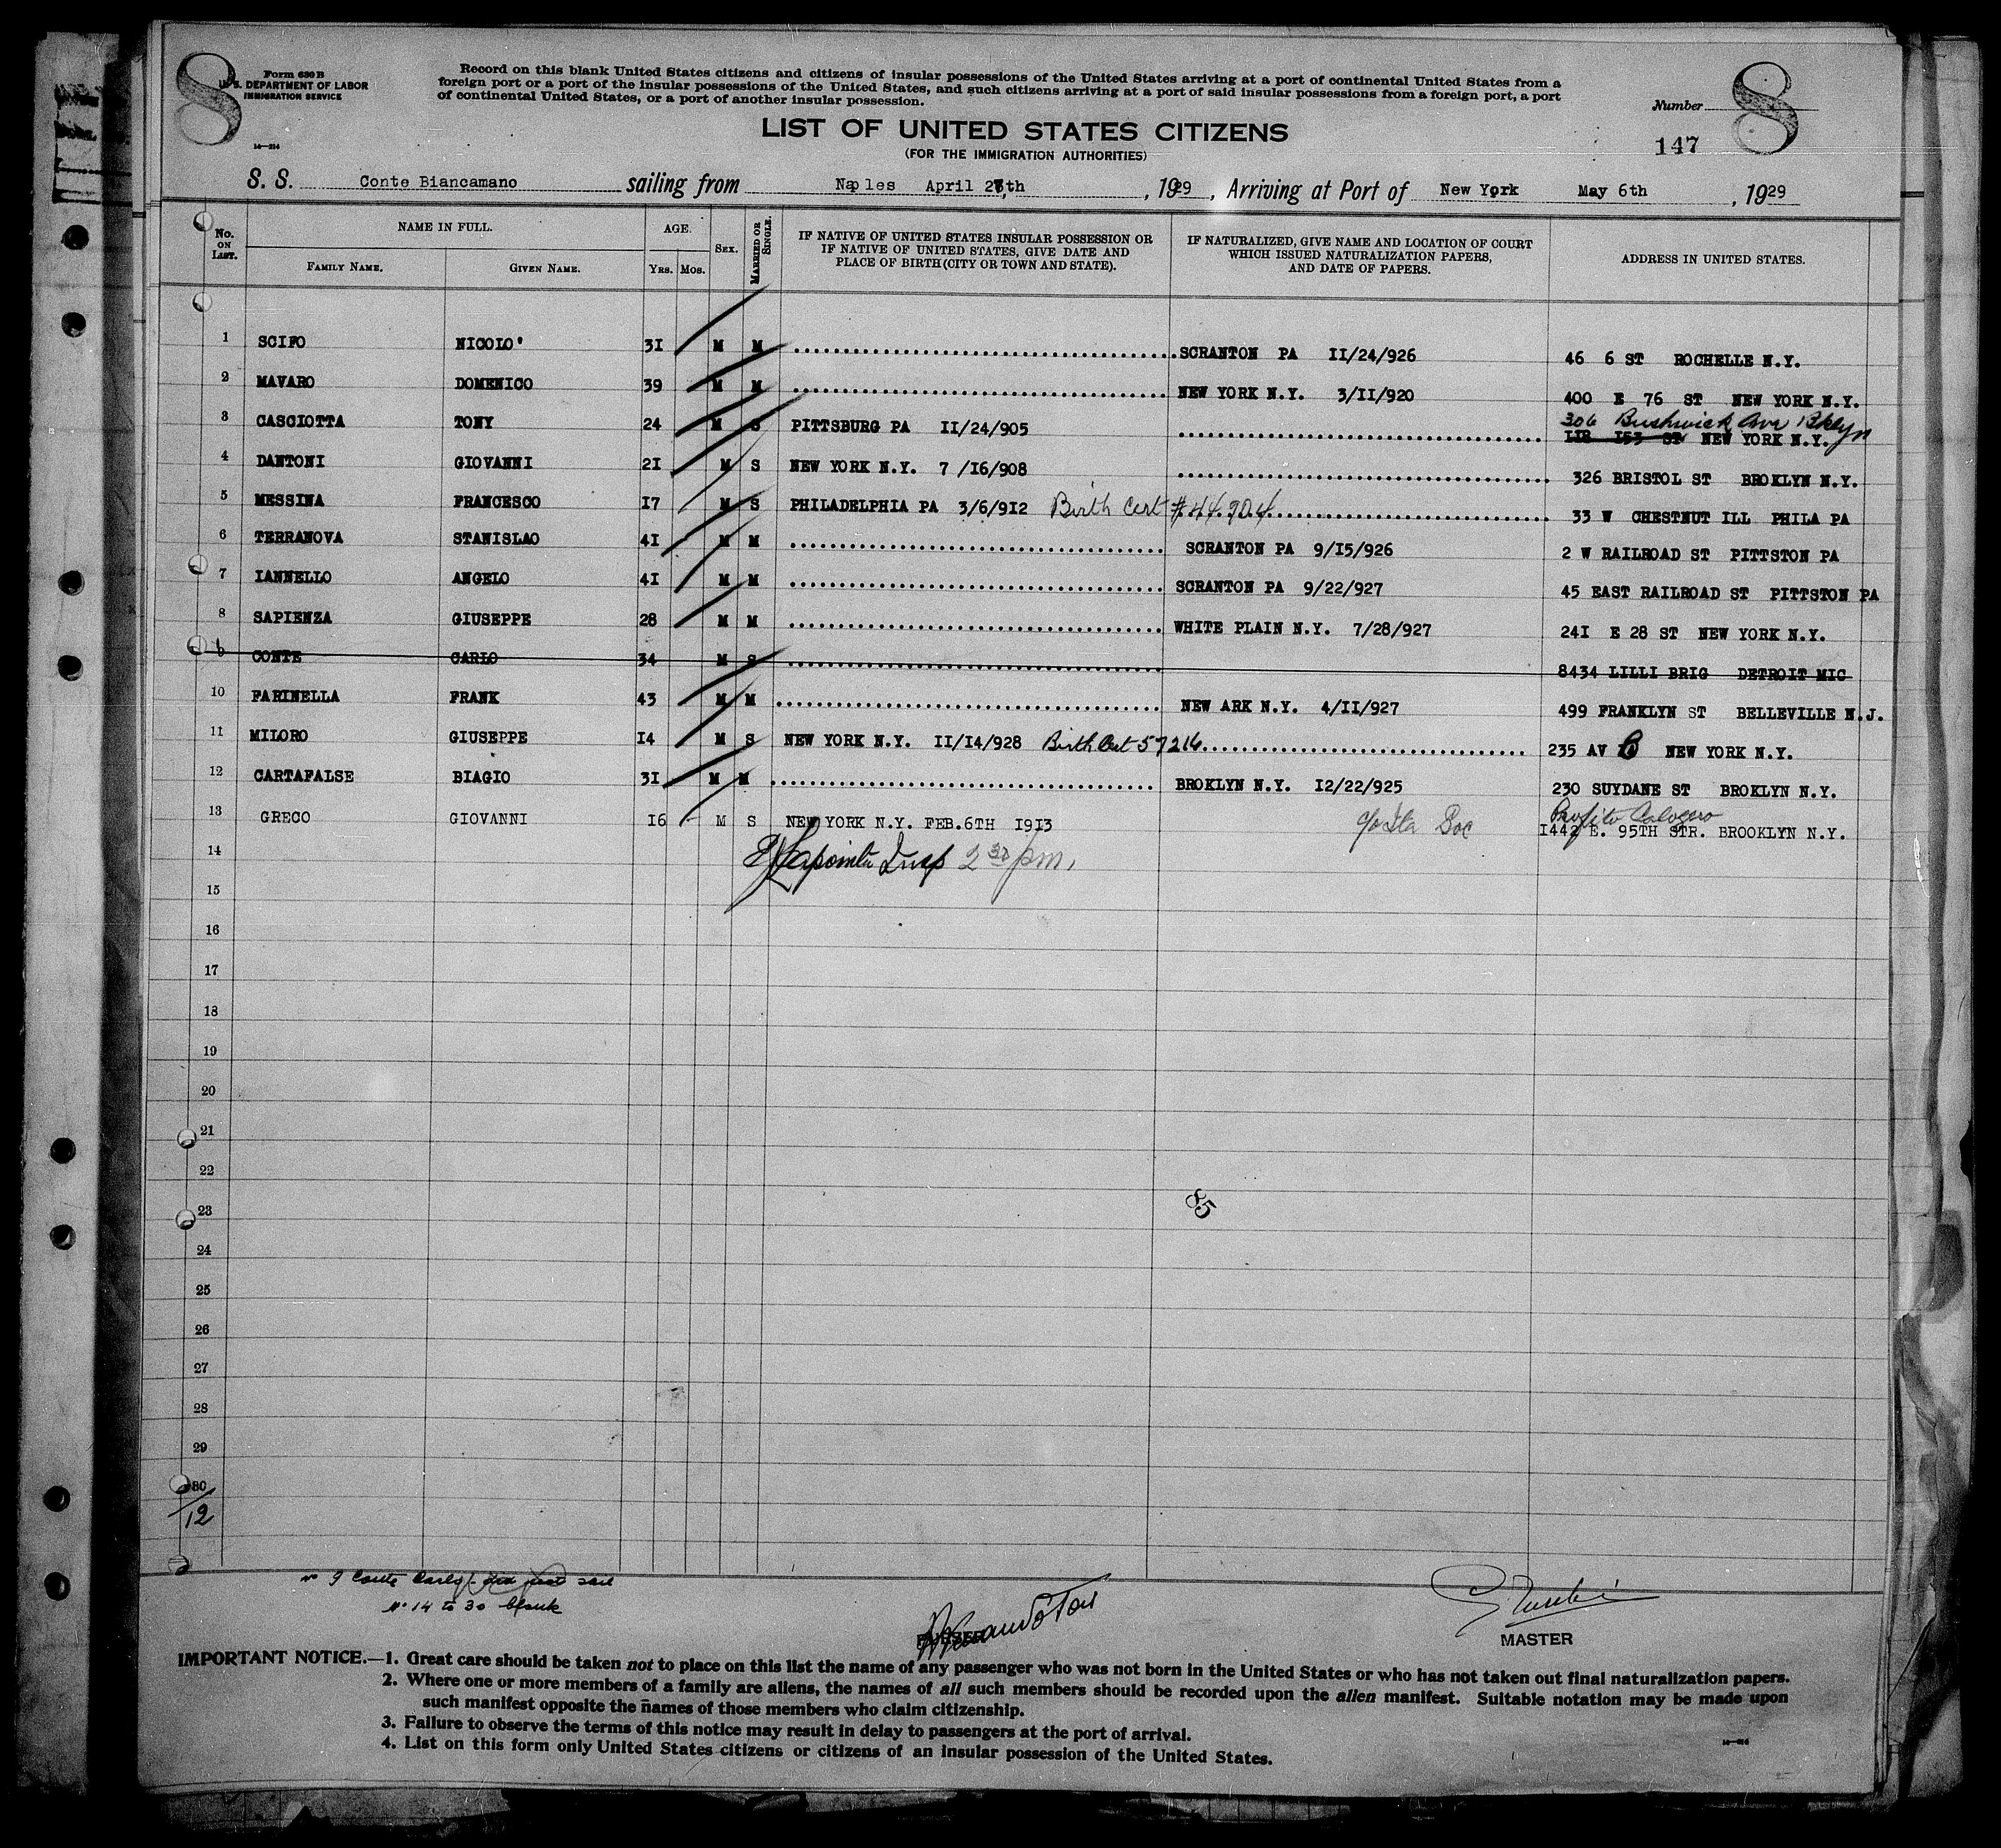 8
Form 630 B
U. S. DEPARTMENT OF LABOR
IMMIGRATION SERVICE
14—214
Record on this blank United States citizens and citizens of insular possessions of the United States arriving at a port of continental United States from a
foreign port or a port of the insular possessions of the United States, and such citizens arriving at a port of said insular possessions from a foreign port, a port
of continental United States, or a port of another insular possession.
Number
8
147
LIST OF UNITED STATES CITIZENS
(FOR THE IMMIGRATION AUTHORITIES)
S. S. Conte Biancamano sailing from Naples April 27th, 1929, Arriving at Port of New York May 6th, 1929
No. ON LIST. NAME IN FULL. AGE. SEX. MARRIED OR SINGLE. IF NATIVE OF UNITED STATES INSULAR POSSESSION OR IF NATIVE OF UNITED STATES, GIVE DATE AND PLACE OF BIRTH (CITY OR TOWN AND STATE). IF NATURALIZED, GIVE NAME AND LOCATION OF COURT WHICH ISSUED NATURALIZATION PAPERS, AND DATE OF PAPERS. ADDRESS IN UNITED STATES.
FAMILY NAME. GIVEN NAME. YRS. MOS.
1 SCIFO NICOLO' 3I M M SCRANTON PA II/24/926 46 6 ST ROCHELLE N.Y.
2 MAVARO DOMENICO 39 M M NEW YORK N.Y. 3/II/920 400 E 76 ST NEW YORK N.Y.
306 Bushwick Ave Bklyn
3 CASCIOTTA TONY 24 M S PITTSBURG PA II/24/905 II8 I53 ST NEW YORK N.Y.
4 DANTONI GIOVANNI 2I M S NEW YORK N.Y. 7 /I6/908 326 BRISTOL ST BROKLYN N.Y.
5 MESSINA FRANCESCO I7 M S PHILADELPHIA PA 3/6/9I2 Birth Cert #44904 33 W CHESTNUT ILL PHILA PA
6 TERRANOVA STANISLAO 4I M M SCRANTON PA 9/I5/926 2 W RAILROAD ST PITTSTON PA
7 IANNELLO ANGELO 4I M M SCRANTON PA 9/22/927 45 EAST RAILROAD ST PITTSTON PA
8 SAPIENZA GIUSEPPE 28 M M WHITE PLAIN N.Y. 7/28/927 24I E 28 ST NEW YORK N.Y.
9 CONTE CARLO 34 M S 8434 LILLI BRIG DETROIT MIC
10 FARINELLA FRANK 43 M M NEW ARK N.Y. 4/II/927 499 FRANKLYN ST BELLEVILLE N.J.
11 MILORO GIUSEPPE I4 M S NEW YORK N.Y. II/I4/928 Birth Cert 57216 235 AV B NEW YORK N.Y.
12 CARTAFALSE BIAGIO 3I M M BROKLYN N.Y. I2/22/925 230 SUYDANE ST BROKLYN N.Y.
Profito Calogero
13 GRECO GIOVANNI I6 M S NEW YORK N.Y. FEB.6TH I9I3 c/o Ita Soc I442 E. 95TH STR. BROOKLYN N.Y.
14 Lapointe Insp 2 30 pm.
15
16
17
18
19
20
21
22
23
85
24
25
26
27
28
29
30
12
No 9 Conte Carlo did not sail
No 14 to 30 blank
MASTER
IMPORTANT NOTICE.—1. Great care should be taken not to place on this list the name of any passenger who was not born in the United States or who has not taken out final naturalization papers.
2. Where one or more members of a family are aliens, the names of all such members should be recorded upon the alien manifest. Suitable notation may be made upon
such manifest opposite the names of those members who claim citizenship.
3. Failure to observe the terms of this notice may result in delay to passengers at the port of arrival.
4. List on this form only United States citizens or citizens of an insular possession of the United States.
14—214